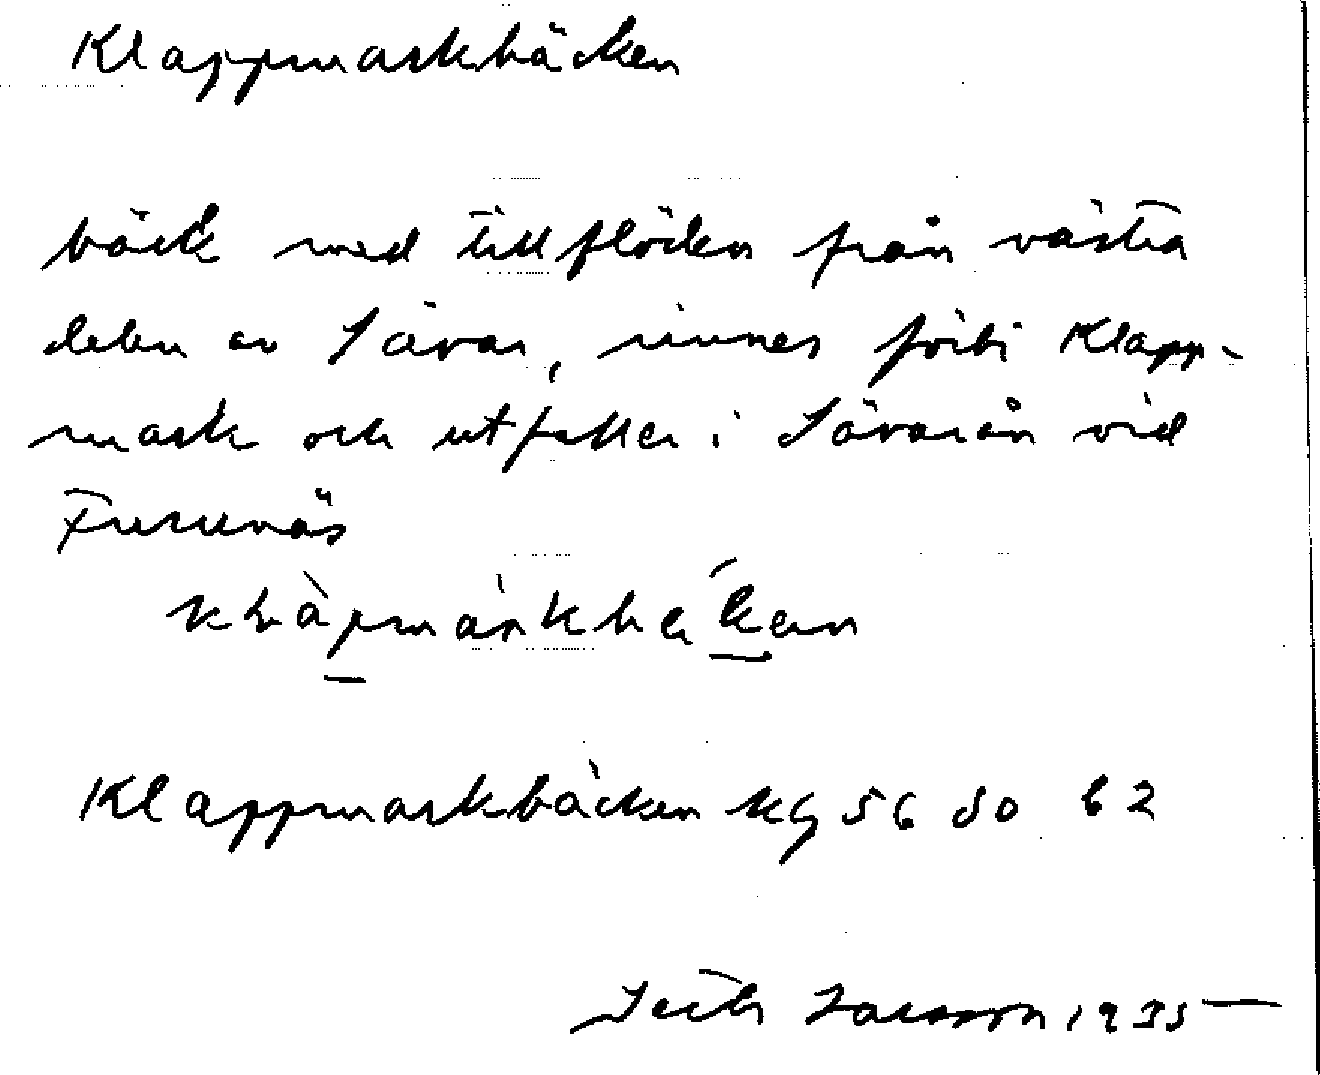 Klappmarkbäcken
bäck med tillflöden från västra
delen av Sävar, rinner förbi Klapp-
mark och utfaller i Sävarån vid
Furunäs
Klappmarkbäcken kg 56 80 62
Larsson 1935